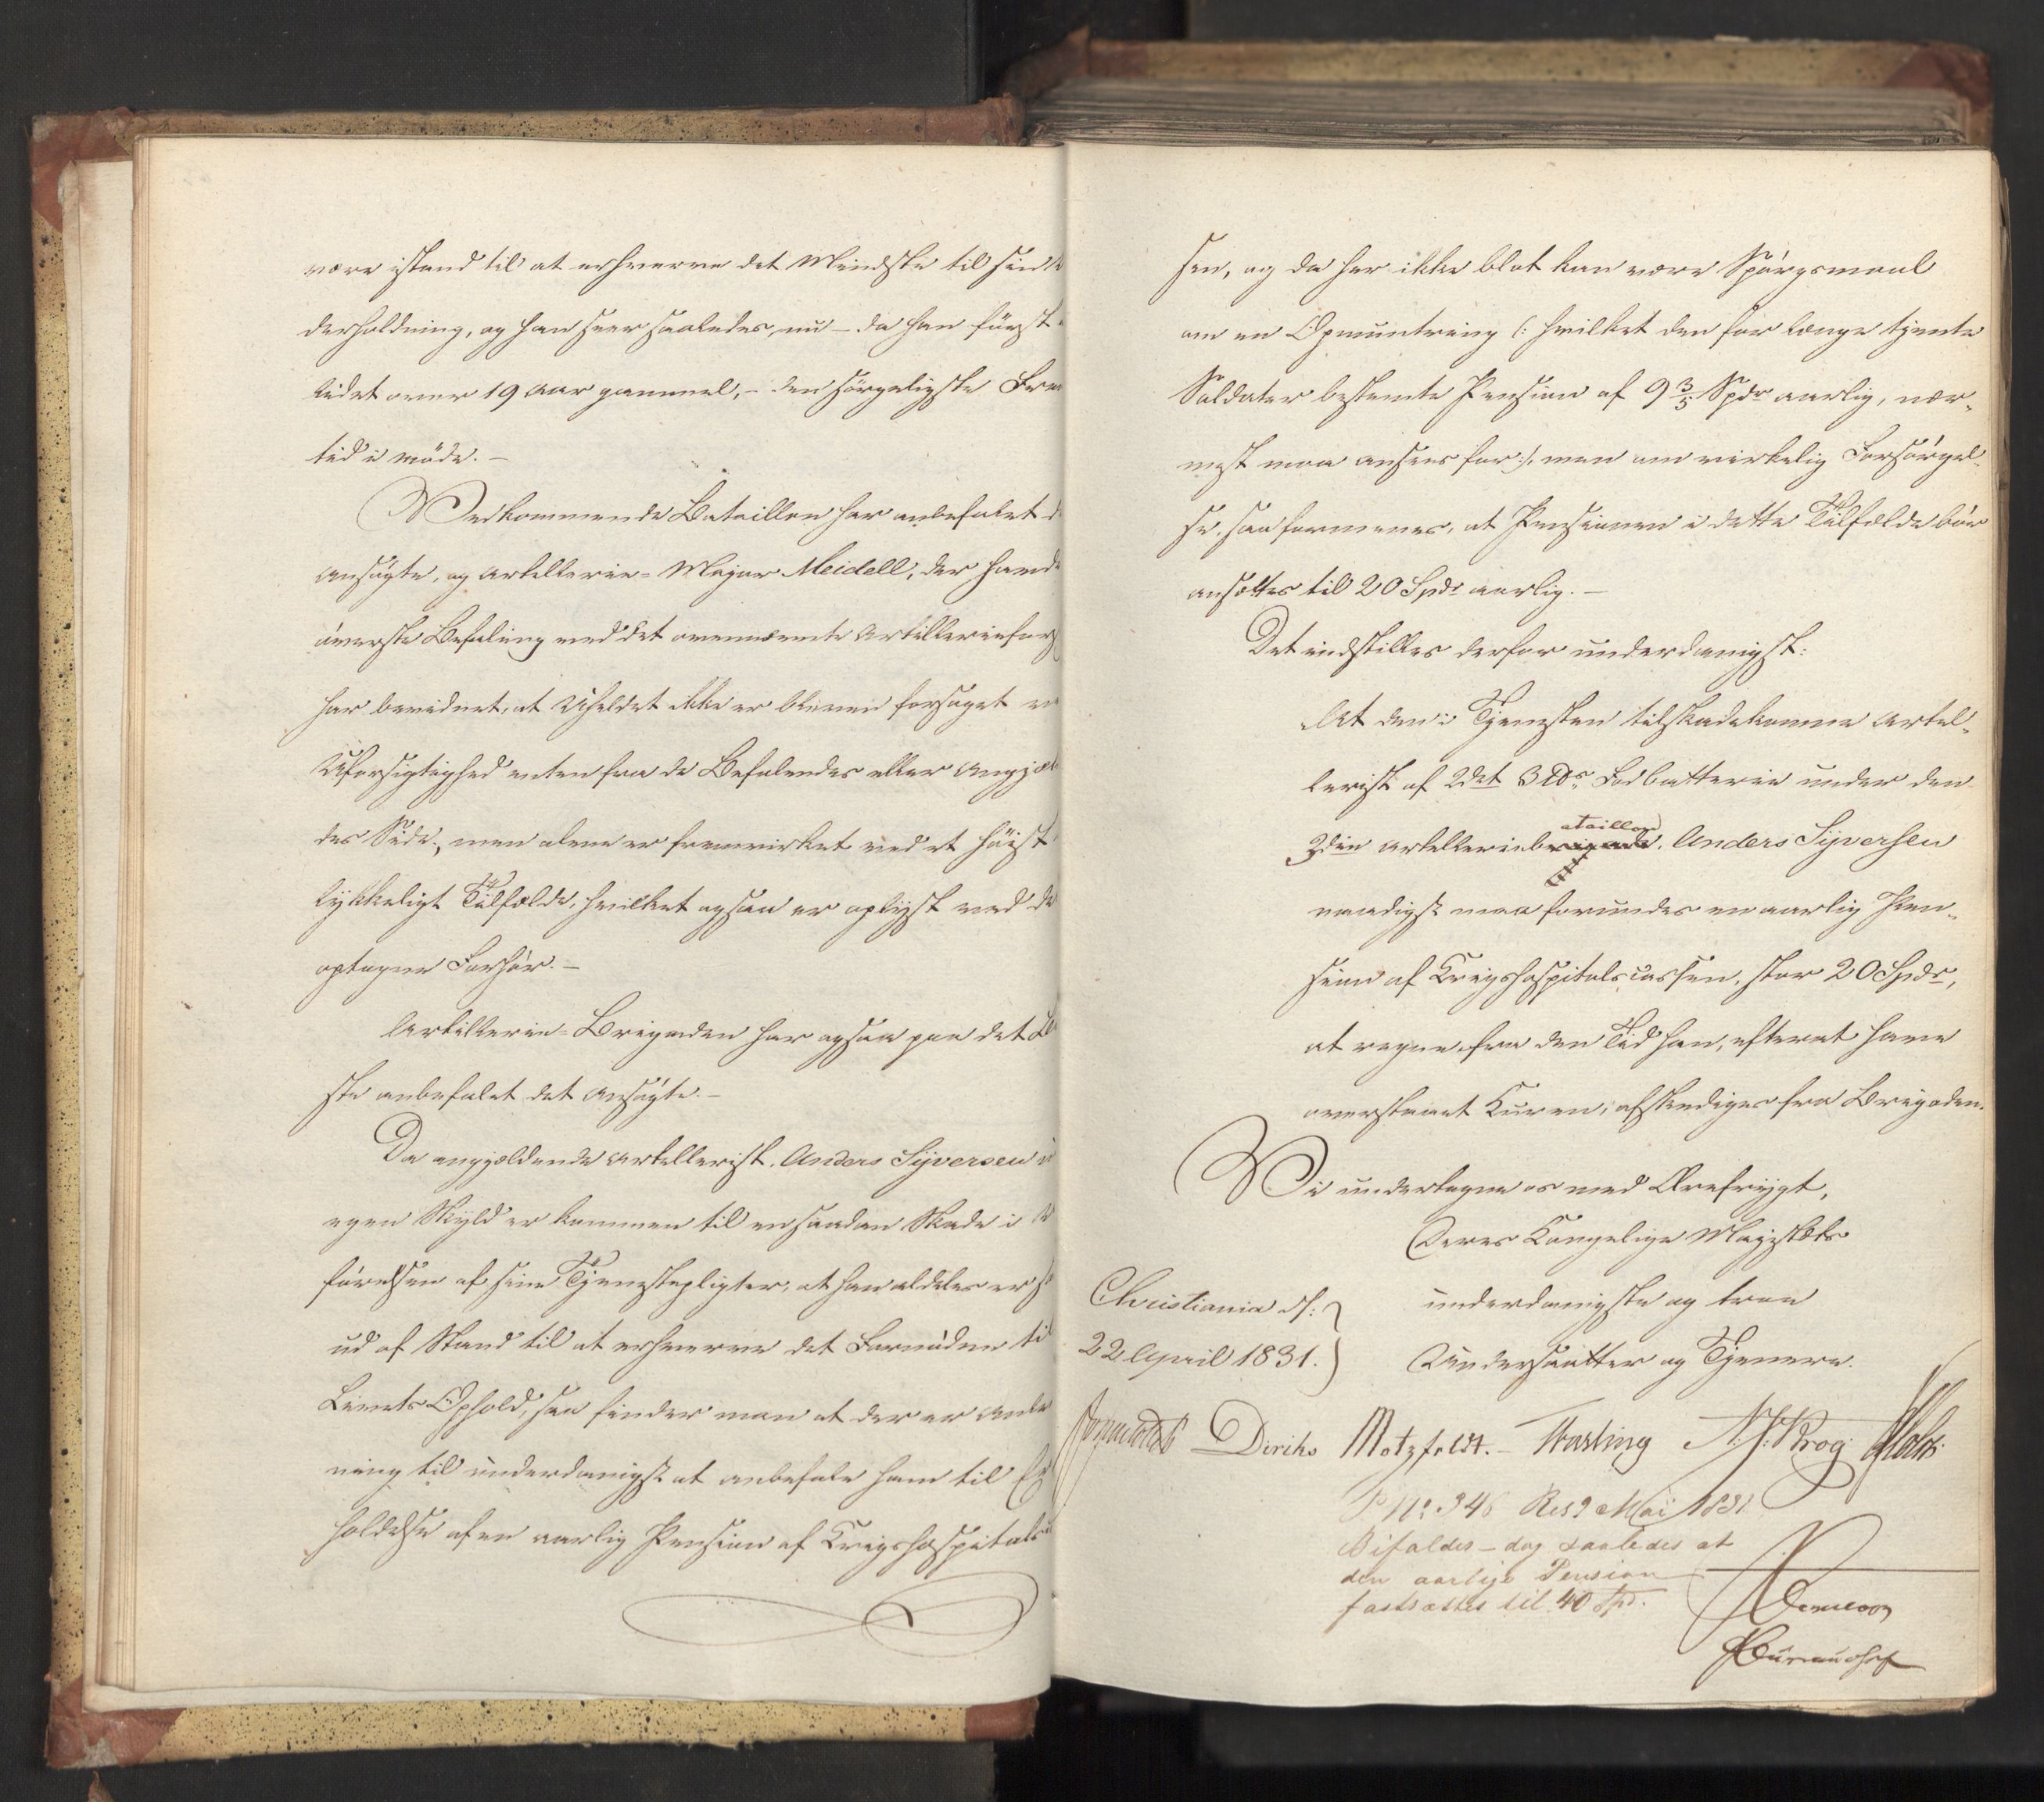 være istand til at erhverve det Mindste til sin
derholdning, og han seer saaledes, nu – da han först
lidet over 19 Aar gammel, – den sörgeligste Frem
tid i möde. –
Vedkommende Bataillon har anbefalet d
Ansögte, og Artillerie-Major Meidell, der havde
överste Befaling ved det ovennævnte Artillerie
har bevidnet, at Uheldet ikke er bleven forsaget ved
Uforsigtighed enten fra de Befalendes eller Angjæl
des Side, men alene er fremvirket ved et höist
lykkeligt Tilfælde, hvilket ogsaa er oplyst ved de
optagne Forhör. –
Artillerie-Brigaden har ogsaa paa det B
ste anbefalet det Ansögte. –
Da angjældende Artillerist, Anders Syversen
egen Skyld er kommen til en saadan Skade i U
förelsen af sine Tjenestepligter, at han aldeles er
ud af Stand til at erhverve det Fornödne til
Livets Ophold, saa finder man at der er Anled
ning til underdanigst at anbefale ham til Er
holdelse af en aarlig Pension af Krigshospitals
sen, og da her ikke blot kan være Spörgsmaal
om en Opmuntring (: hvilket den for længe tjente
Soldater bestemte Pension af 9 3/5 Spdr aarlig, nær-
mest maa ansees for :), men om virkelig Forsörgel-
se, saa formenes, at Pensionen i dette Tilfælde bör
ansættes til 20 Spdr aarlig. –
Det indstilles derfor underdanigst:
At den i Tjenesten tilskadekomne Artil-
lerist af 2det 3 Pds Fodbatterie under den
3die Artillerieb ataillon, Anders Syversen
naadigst maa forundes en aarlig Pen-
sion af Krigshospitalscassen, stor 20 Spdr,
at regne fra den Tid han, efterat have
overstaaet Kuren, afskediges fra Brigaden.
Vi undertegne os med Ærefrygt,
Deres Kongelige Majestæts
Christiania d:
underdanigste og troe
22 April 1831.
Undersaatter og Tjenere.
Diriks Motzfeldt. Fasting N. J. Krog Holst
P No 346 Res 9 Mai 1831
Bifaldes – dog saaledes at
den aarlige Pension
fastsættes til 40 Spd.